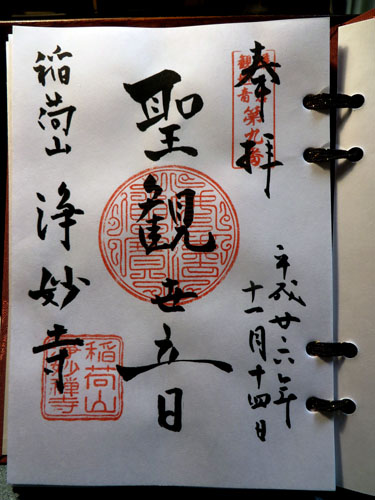 奉拝
第九番
平成廿六年
十一月十四日
聖観世音
稲荷山
浄妙寺
稲荷山
浄妙禅寺